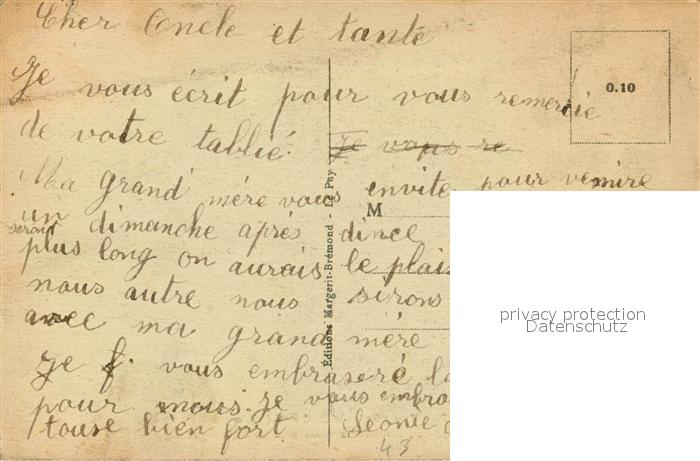 Cher Oncle et tante
Je vous écrit pour vous remercie
0.10
de votre tablié. Je vous re
Ma grand mére vous envite pour venire
un dimanche aprés dinee
M
seront
plus long on aurais le plais
nous autre nous sirons
avec ma grand mére
je f. vous embraseré
pour mous. je vous embra
touse bien fort Leonie
43
Éditions Margerit-Brémond - Le Puy
privacy protection
Datenschutz